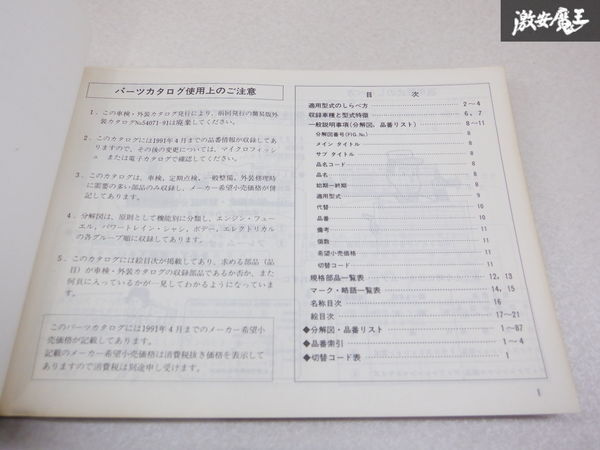 激安魔王
パーツカタログ使用上のご注意
1．この車検・外装カタログ発行により，前回発行の簡易版外
装カタログNo.54071-91は廃棄してください。
2．このカタログには1991年4月までの品番情報が収録してあ
りますので，その後の変更については，マイクロフィッシ
ュ または電子カタログで確認してください。
3．このカタログは，車検，定期点検，一般整備，外装修理時
に需要の多い部品のみ収録し，メーカー希望小売価格が併
記してあります。
4．分解図は，原則として機能別に分類し，エンジン・フュー
エル，パワートレイン・シャシ，ボデー，エレクトリカル
の各グループ順に収録してあります。
5．このカタログには絵目次が掲載してあり，求める部品（品
目）が車検・外装カタログの収録部品であるか否か，また
何頁に入っているかが一見してわかるようになっていま
す。
このパーツカタログには1991年4月までのメーカー希望小
売価格が記載してあります。
記載のメーカー希望小売価格は消費税抜き価格を表示して
ありますので消費税は別途申し受けます。
目 次
適用型式のしらべ方 2～4
収録車種と型式特徴 6，7
一般説明事項（分解図，品番リスト） 8～11
分解図番号（FIG. No.） 8
メイン タイトル 8
サブ タイトル 8
品名コード 8
品名 8
始期一終期 8
適用型式 9
代替 10
品番 10
備考 11
個数 11
希望小売価格 11
切替コード 11
規格部品一覧表 12，13
マーク・略語一覧表 14，15
名称目次 16
絵目次 17～21
◆分解図・品番リスト 1～87
◆品番索引 1～4
◆切替コード表 1
1